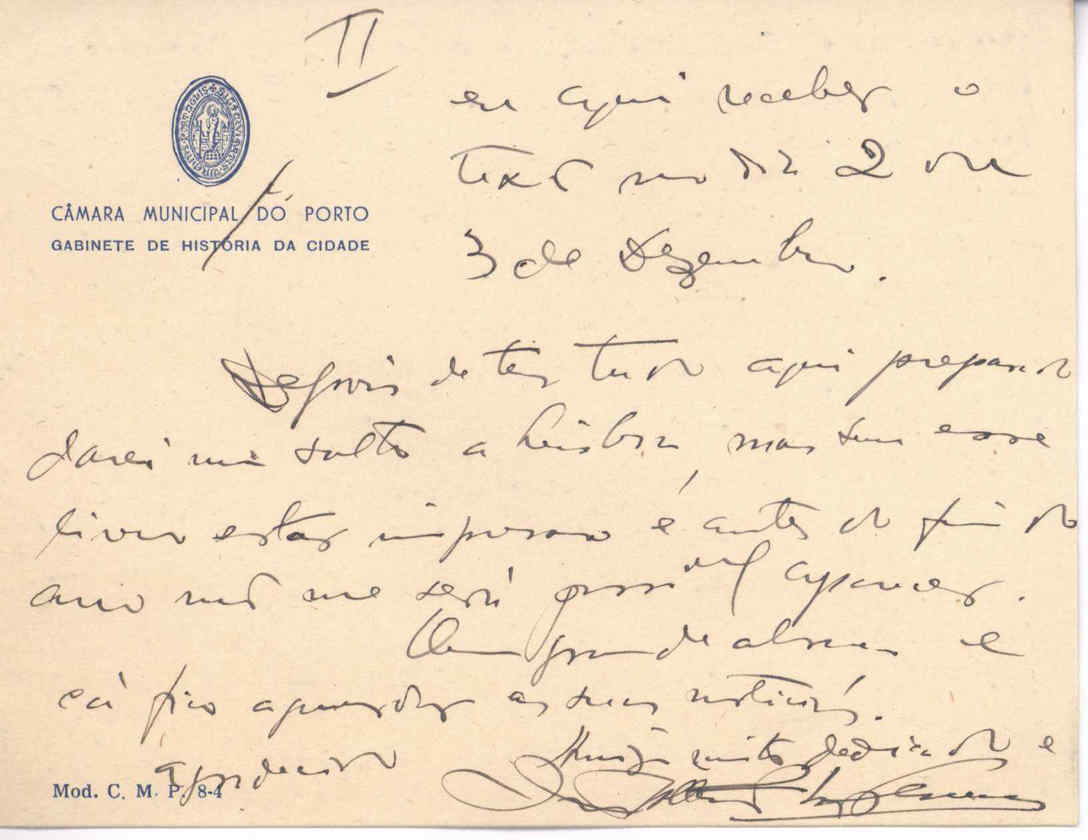 II
eu aqui receber o
texto no dia 2 ou
3 de Dezembro.
CÂMARA MUNICIPAL DO PORTO
GABINETE DE HISTÓRIA DA CIDADE
Depois de ter tudo aqui preparado
darei um salto a Lisboa, mas sem esse
livro estar impresso e antes do fim do
ano não me será possivel aparecer.
Um grande abraço e
cá fico aguardar as suas noticias.
Amigo muito dedicado e
agradecido
Mod. C. M. P. 8-4